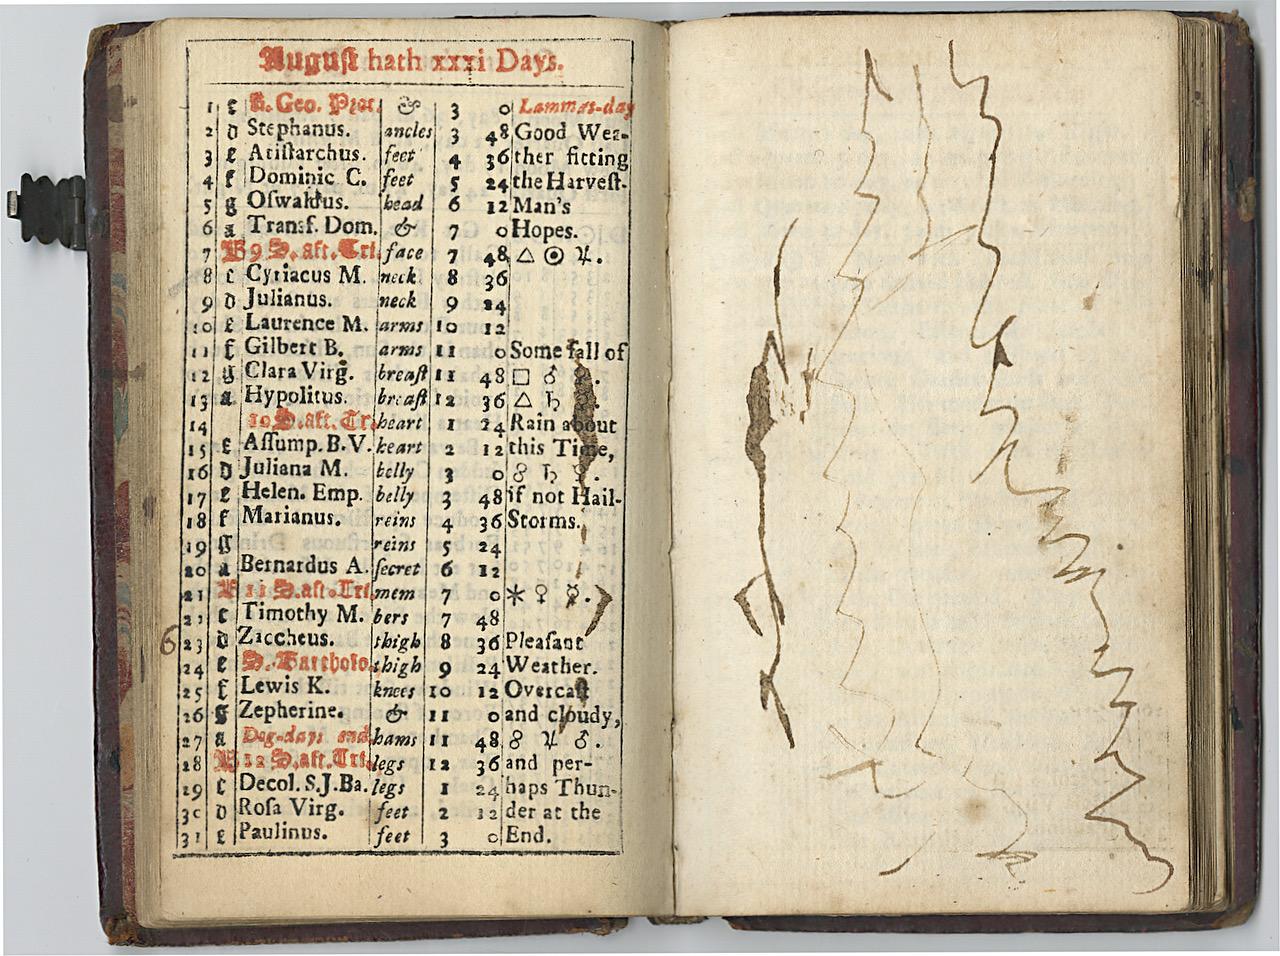 August hath xxxi Days.
1 c K. Geo. Proc. & 3 0 Lammas-day
2 d Stephanus. ancles 3 48 Good Wea-
3 e Aristarchus. feet 4 36 ther fitting
4 f Dominic C. feet 5 24 the Harvest-
5 g Oswaldus. head 6 12 Man's
6 a Transf. Dom. & 7 0 Hopes.
7 B 9 S. aft. Tri. face 7 48 △ ☉ ♃.
8 c Cyriacus M. neck 8 36
9 d Julianus. neck 9 24
10 e Laurence M. arms 10 12
11 f Gilbert B. arms 11 0 Some fall of
12 g Clara Virg. breast 11 48 □ ♂
13 a Hypolitus. breast 12 36 △ ♄
14 10 S. aft. Tr. heart 1 24 Rain about
15 c Assump. B. V. heart 2 12 this Time,
16 d Juliana M. belly 3 0 ☍ ♄ ♀.
17 e Helen. Emp. belly 3 48 if not Hail-
18 f Marianus. reins 4 36 Storms.
19 g reins 5 24
20 a Bernardus A. secret 6 12
21 B 11 S. aft. Tri. mem 7 0 ⚹ ♀ ☿.
22 c Timothy M. bers 7 48
6 23 d Zaccheus. thigh 8 36 Pleasant
24 e S. Bartholo. thigh 9 24 Weather.
25 f Lewis K. knees 10 12 Overcast
26 g Zepherine. & 11 0 and cloudy,
27 a Dog-days end. hams 11 48 ☍ ♃ ♂.
28 B 12 S. aft. Tri. legs 12 36 and per-
29 c Decol. S. J. Ba. legs 1 24 haps Thun-
30 d Rosa Virg. feet 2 12 der at the
31 e Paulinus. feet 3 0 End.